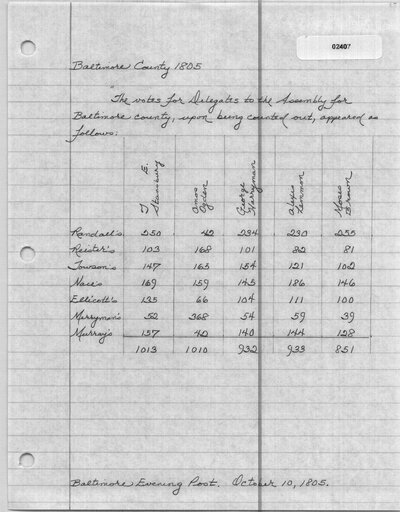 02407
Baltimore County 1805
"The votes for Delegates to the Assembly for
Baltimore county, upon being counted out, appeared as
follows:
T E. Stansbury | Amos Ogden | George Harryman | Alexis Lemmon | Moses Brown
Randall's 250 42 234 230 255
Reister's 103 168 101 82 81
Towson's 147 165 154 121 102
Nace's 169 159 145 186 146
Ellicott's 135 66 104 111 100
Merryman's 52 368 54 59 39
Murray's 157 42 140 144 128
1013 1010 932 933 851
Baltimore Evening Post. October 10, 1805.